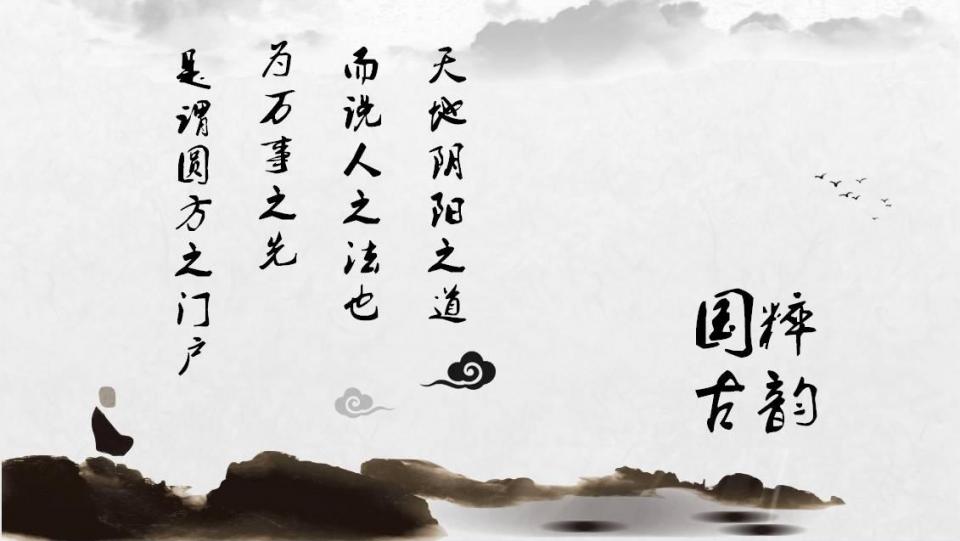 天地阴阳之道
而说人之法也
为万事之先
是谓圆方之门户
国粹
古韵